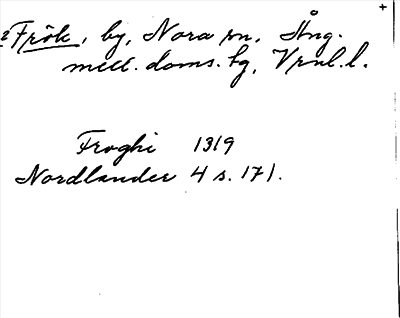 Frök, by, Nora sn, Ång.
mell. doms. tg, Vrnl. l.
Froghi 1319
Nordlander 4 s. 171.